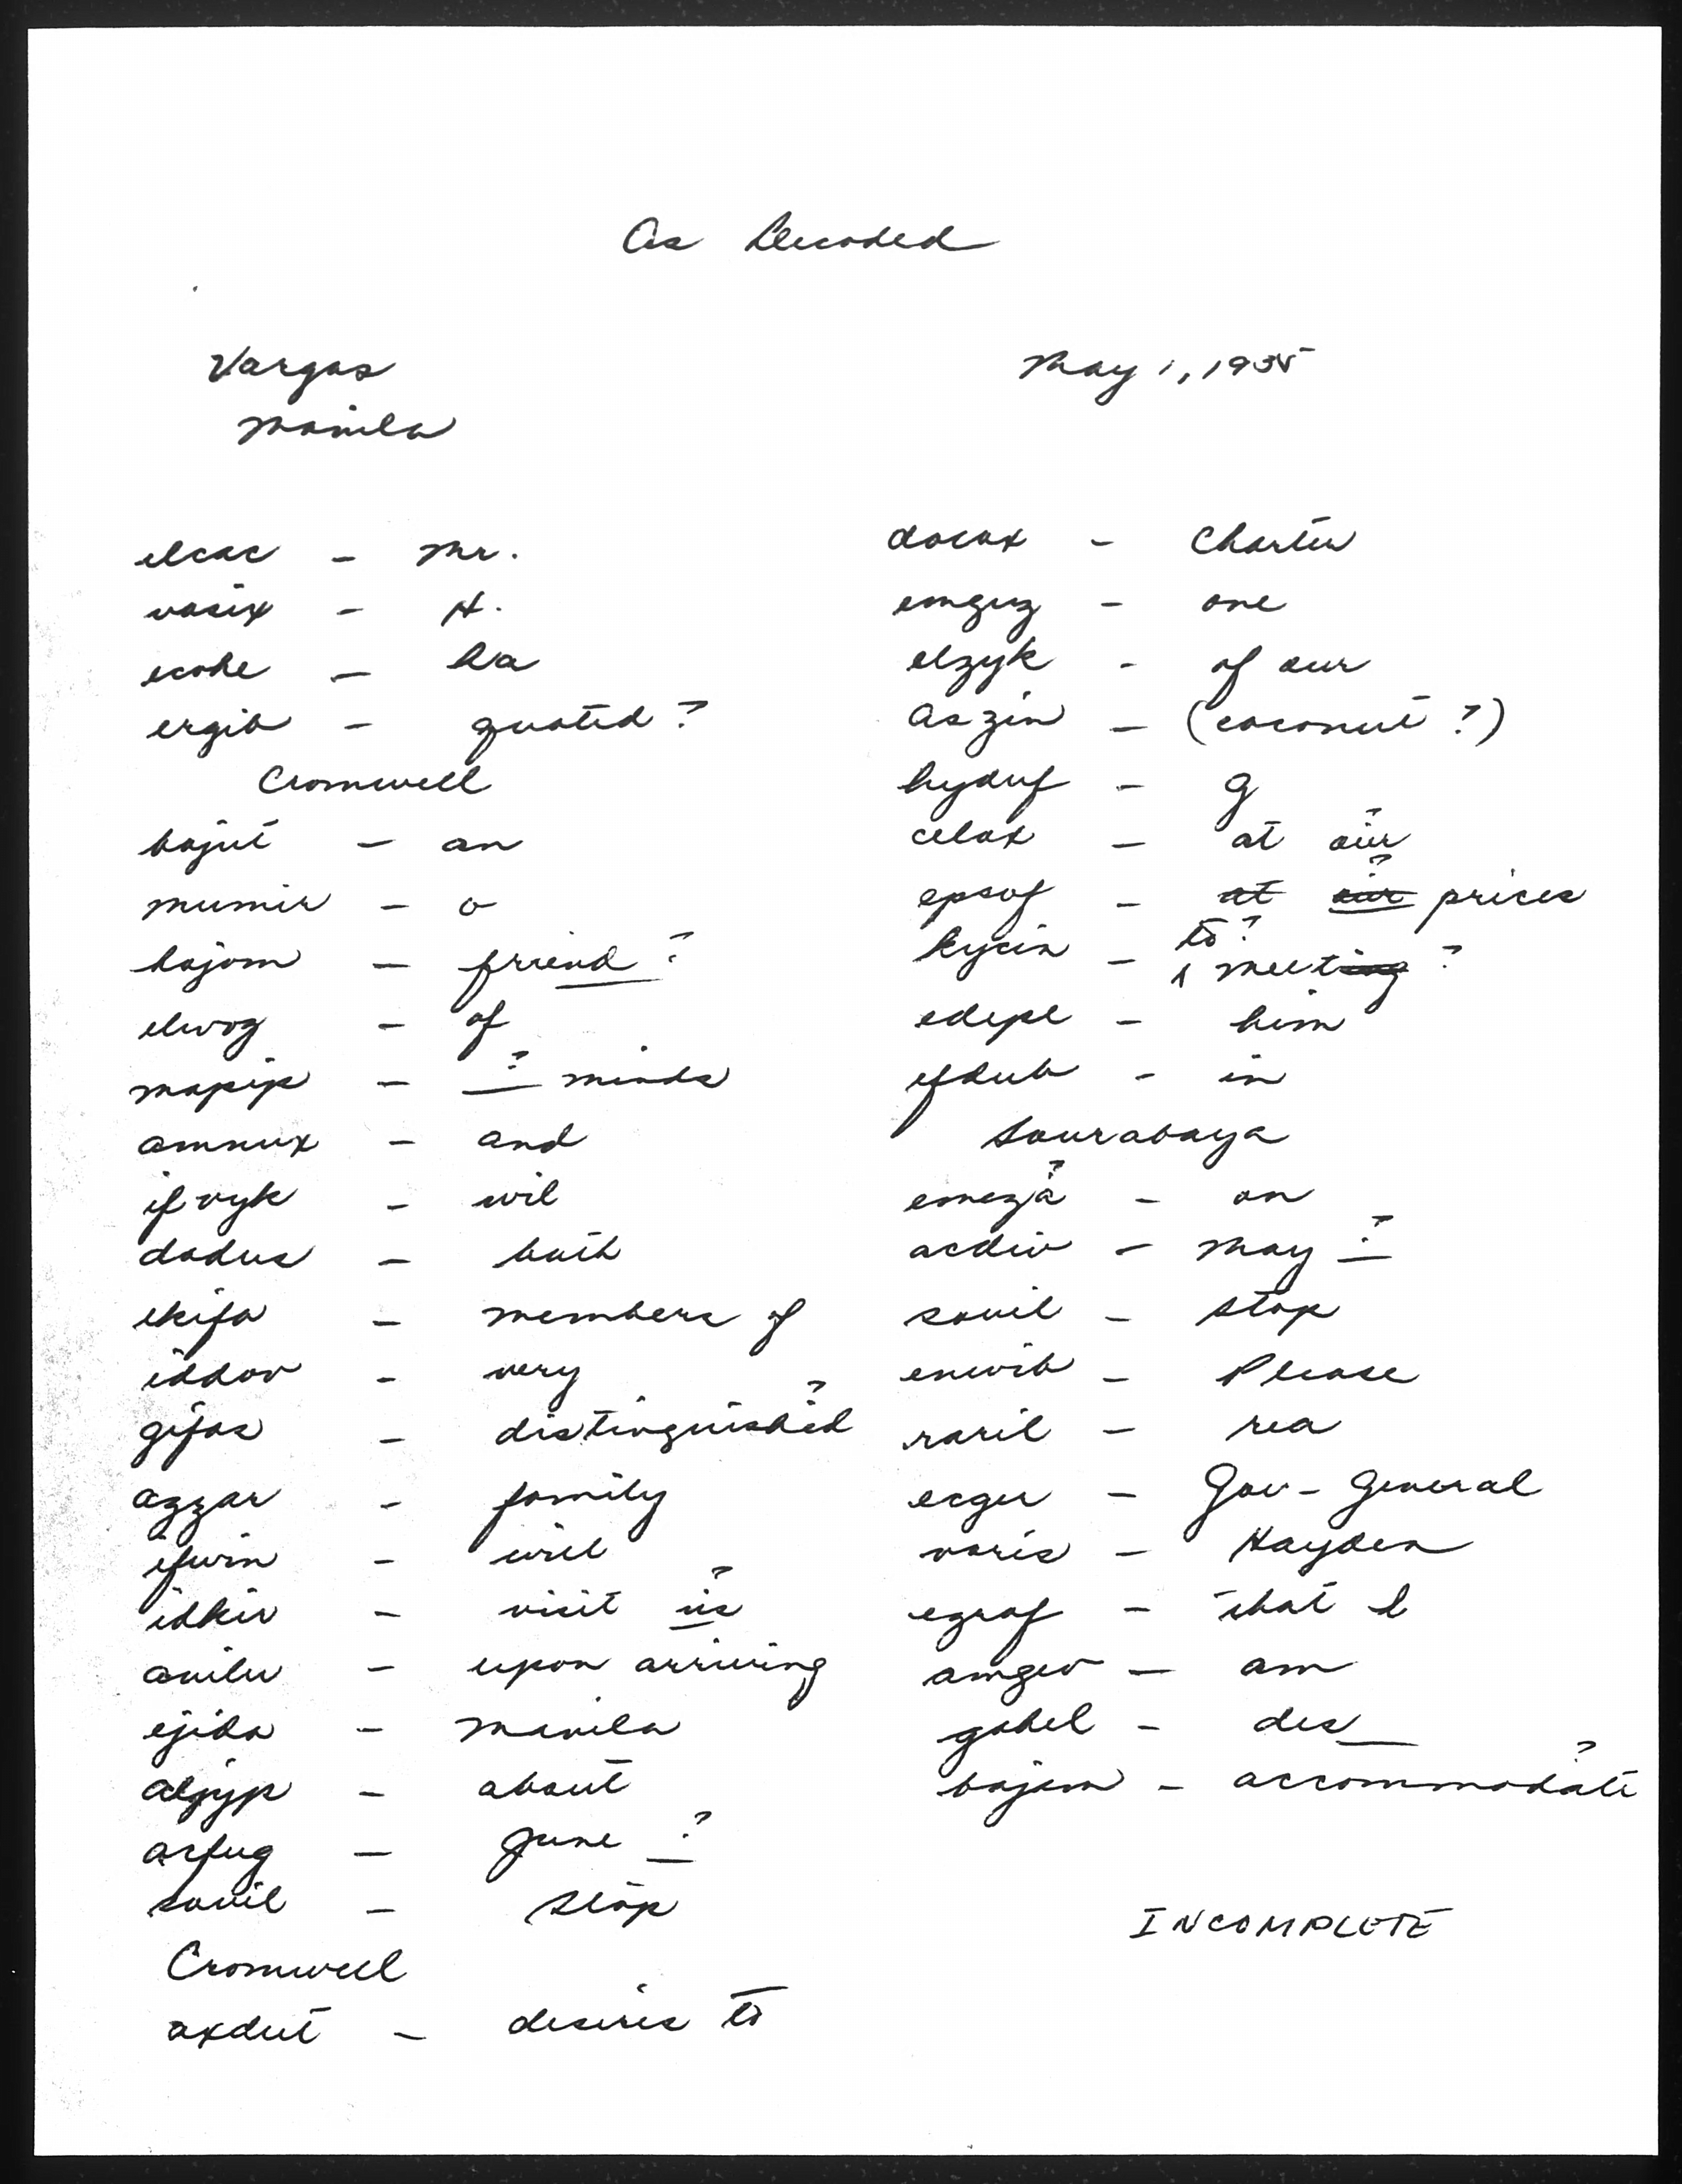 As Decoded
Vargas
Manila
May 1, 1935
elcac - Mr.
vosix - H.
ecohe - ha
ergib - quoted ?
Cromwell
bojut - an
mumir - o
hojom - friend ?
elwog - of
mopip - ? minds
amnux - and
ifvyk - wil
dodus - both
ekifa - members of
iddov - very
gifos - distinguished ?
azzar - family
ifwin - will
idkir - visit us ?
avilu - upon arriving
ejiba - Manila
aljyp - about
arfug - June ?
souil - Stop
Cromwell
axdut - desires to
docox - Charter
emguz - one
elzyk - of our
aszin - (coconut ?)
hyduf - g
celox - at our ?
epsof - at our ? prices
kycin - to ? meeting ?
edepe - him
efdub - in
Sourabaya
emeza ? - on
acdiv - May ?
souil - Stop
enwib - Please
raril - rea
ecger - Gov - General
voris - Hayden
egraf - that I
amgev - am
gohel - des
bojem - accommodate ?
INCOMPLETE